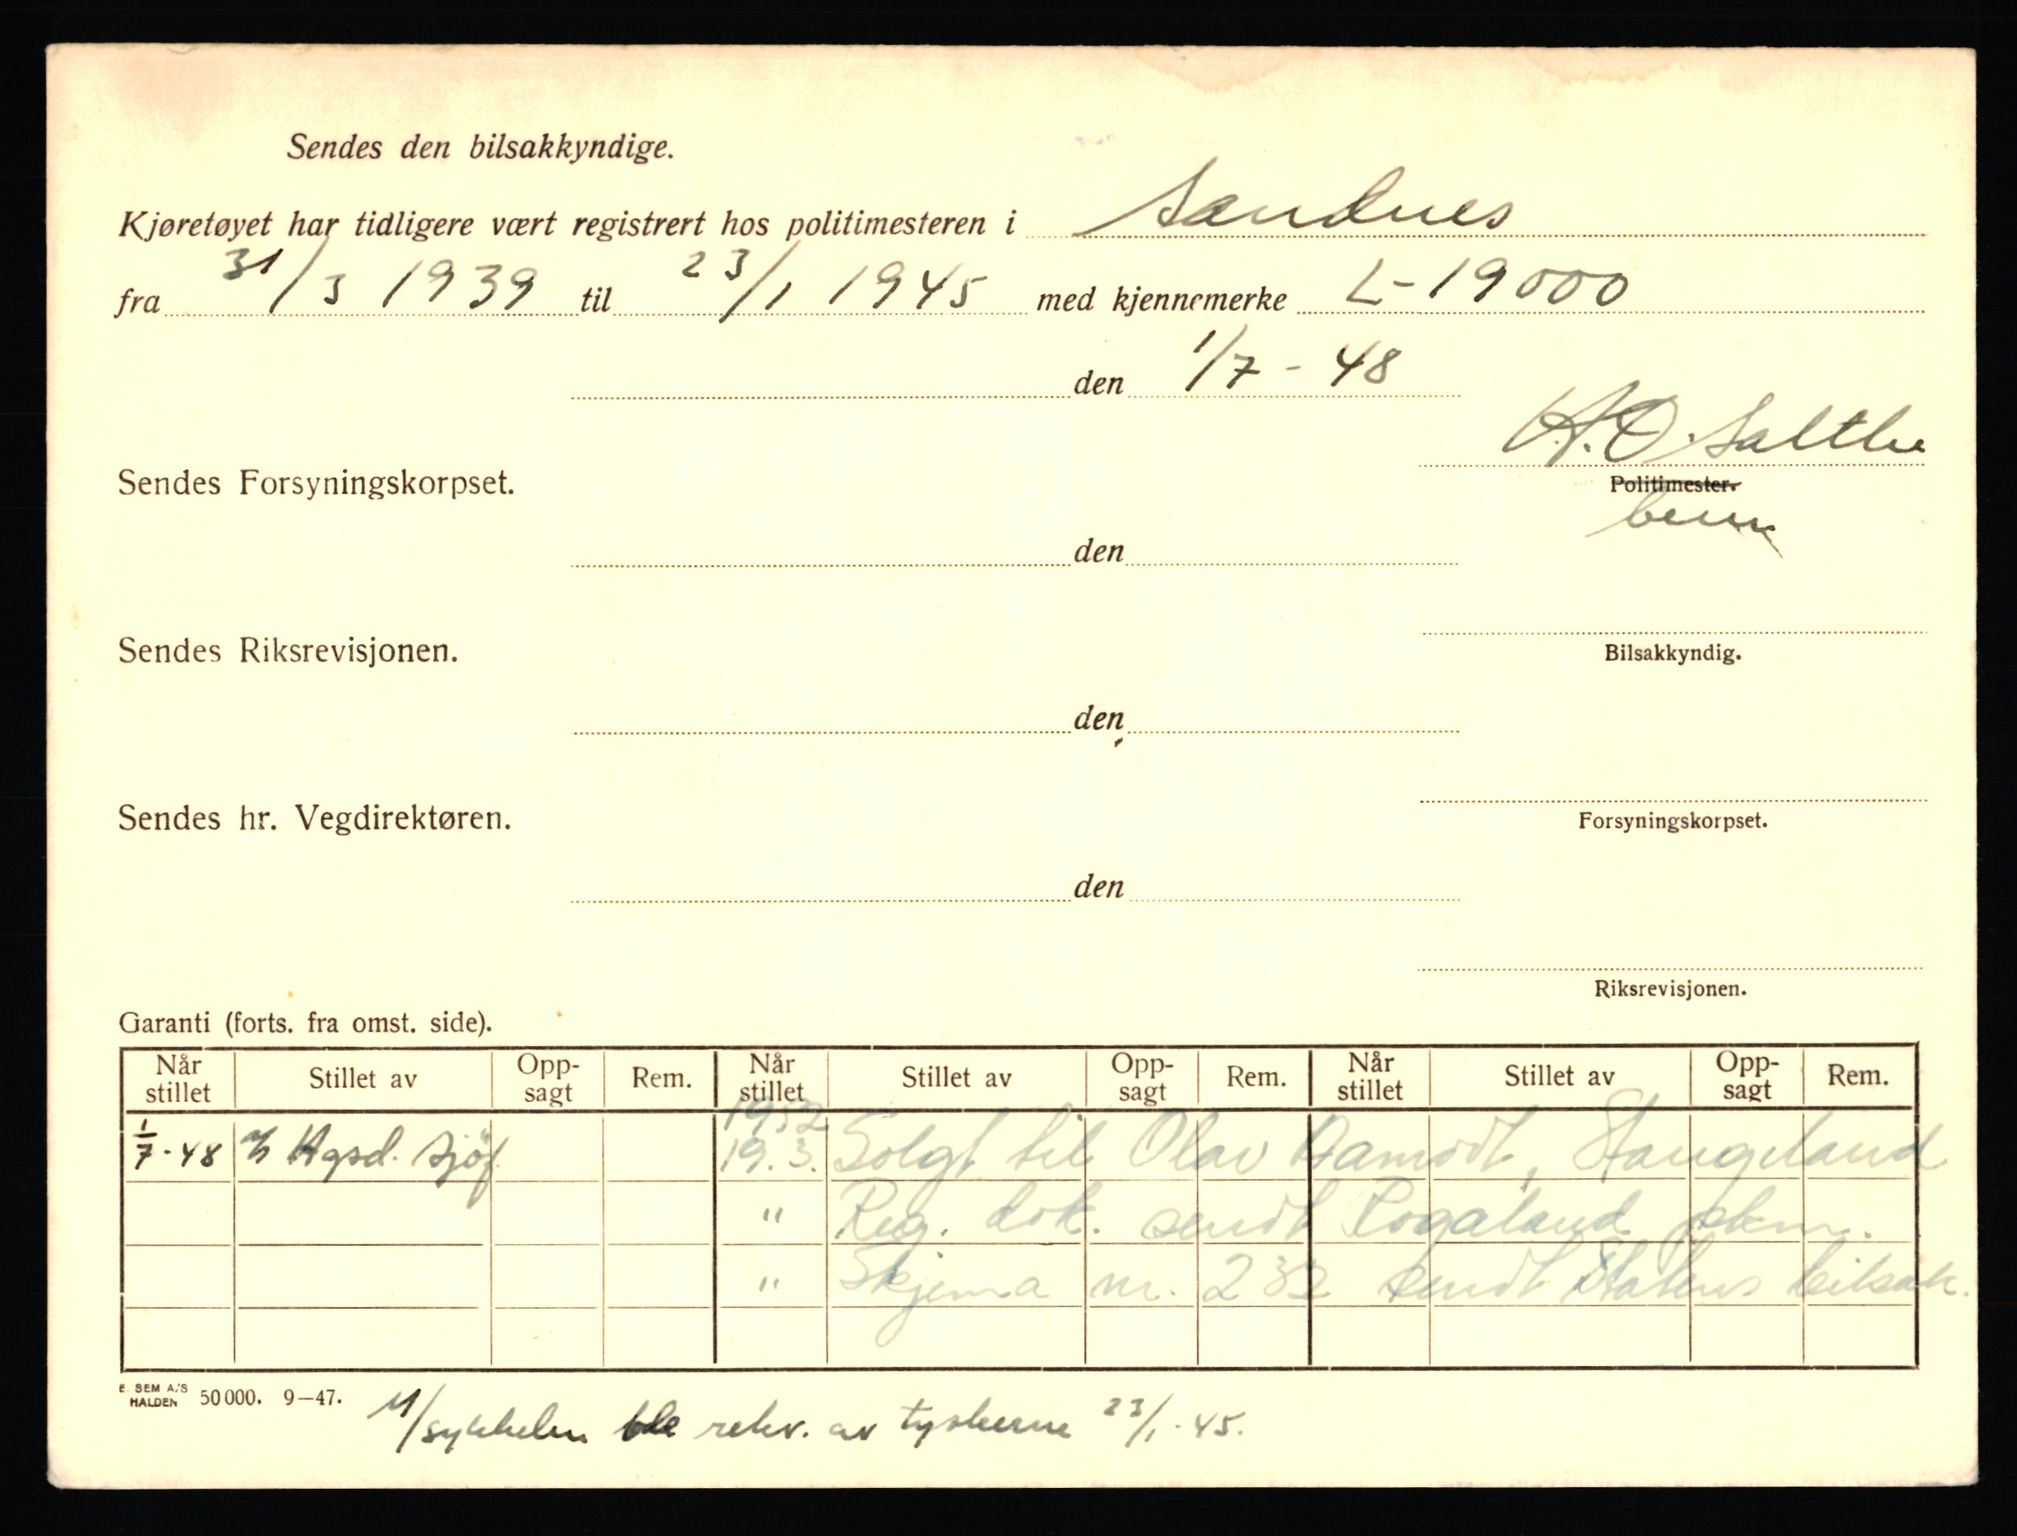 Sendes den bilsakkyndige.
Kjøretøyet har tidligere vært registrert hos politimesteren i Sandnes
fra 31/3 1939 til 23/1 1945 med kjennemerke L-19000
den 1/7 - 48
Sendes Forsyningskorpset.
Politimester.
den
Sendes Riksrevisjonen.
Bilsakkyndig.
den
Sendes hr. Vegdirektøren.
Forsyningskorpset.
den
Riksrevisjonen.
Garanti (forts. fra omst. side).
Når stillet Stillet av Opp-sagt Rem. Når stillet Stillet av Opp-sagt Rem. Når stillet Stillet av Opp-sagt Rem.
1952
1/7-48 A/S Hgsd. sjöf 19.3. Solgt til Olav Aamodt, Stangeland
" Reg. dok. sendt Rogaland pkm.
" Skjema nr. 232 sendt Statens bilsak.
E. SEM A/S HALDEN 50 000. 9—47.
M/sykkelen ble rekv. av tyskerne 23/1-45.